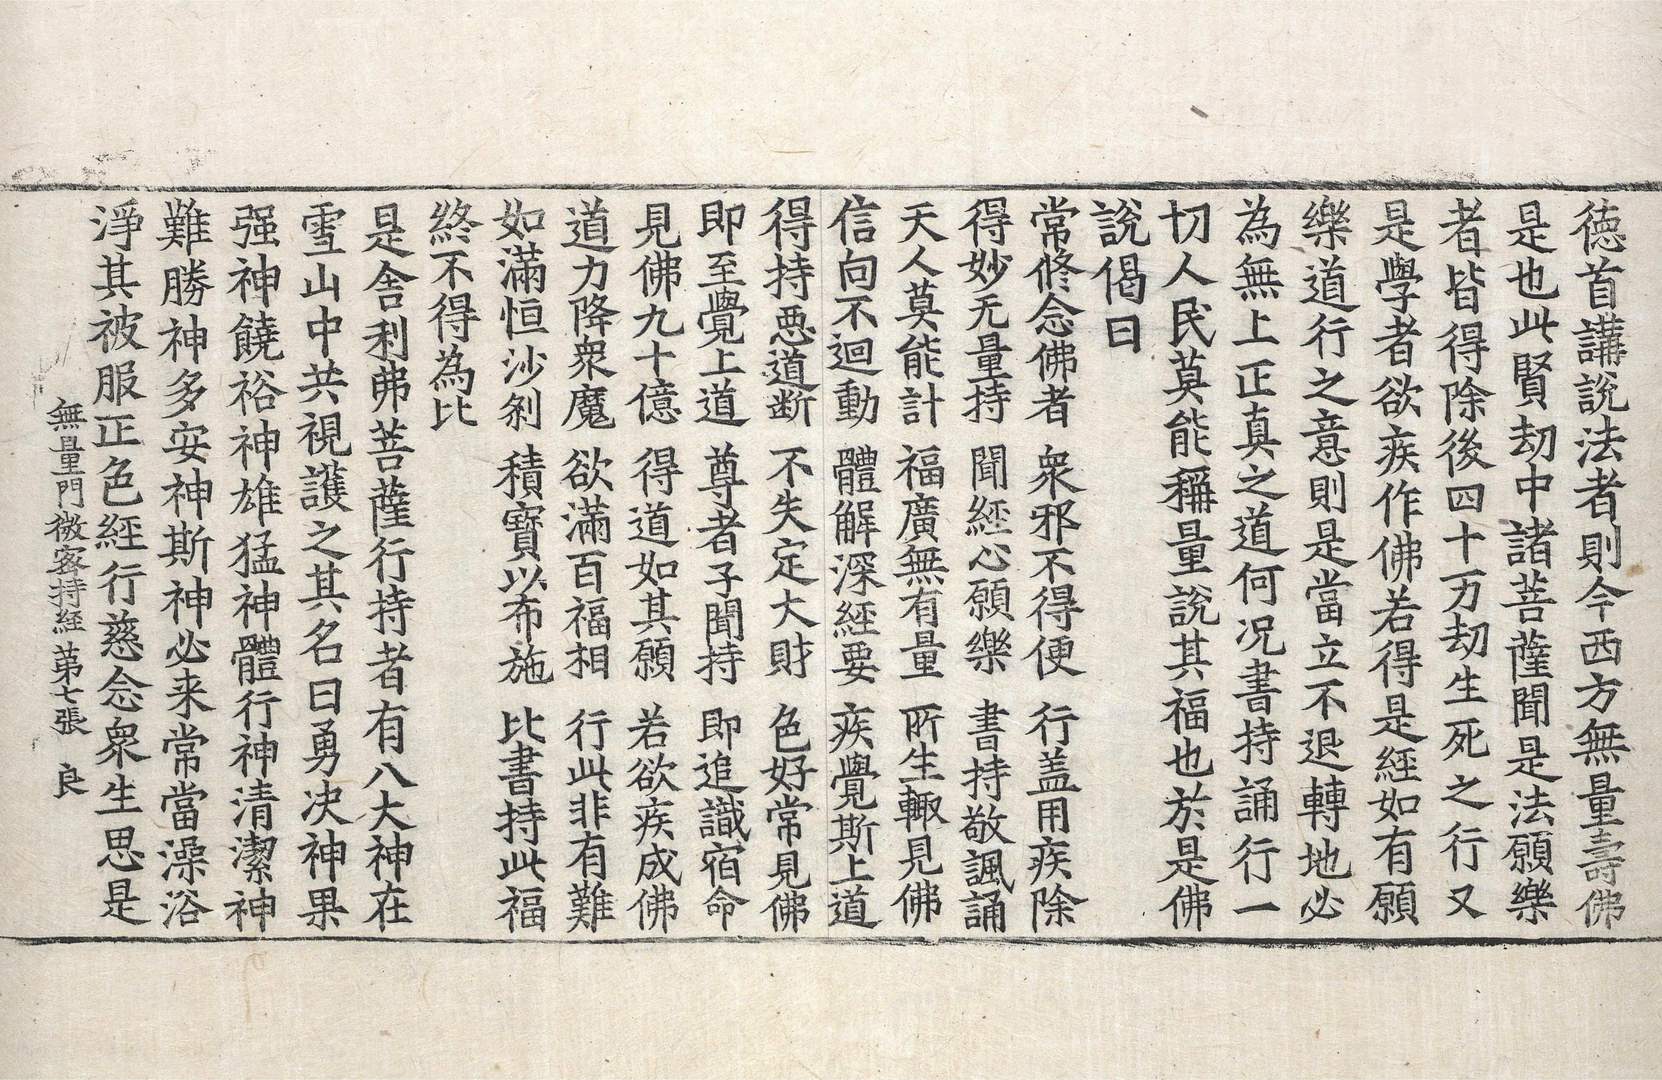 德首講說法者則今西方無量壽佛
是也此賢劫中諸菩薩聞是法願樂
者皆得除後四十万劫生死之行又
是學者欲疾作佛若得是經如有願
樂道行之意則是當立不退轉地必
為無上正真之道何况書持誦行一
切人民莫能稱量說其福也於是佛
說偈曰
常修念佛者 衆邪不得便 行盖用疾除
得妙无量持 聞經心願樂 書持敬諷誦
天人莫能計 福廣無有量 所生輙見佛
信向不迴動 體解深經要 疾覺斯上道
得持惡道断 不失定大財 色好常見佛
即至覺上道 尊者子聞持 即追識宿命
見佛九十億 得道如其願 若欲疾成佛
道力降衆魔 欲滿百福相 行此非有難
如滿恒沙剎 積寶以布施 比書持此福
終不得為比
是舍利弗菩薩行持者有八大神在
雪山中共視護之其名曰勇决神果
强神饒裕神雄猛神體行神清潔神
難勝神多安神斯神必来常當澡浴
淨其被服正色經行慈念衆生思是
無量門微密持經 苐七張 良